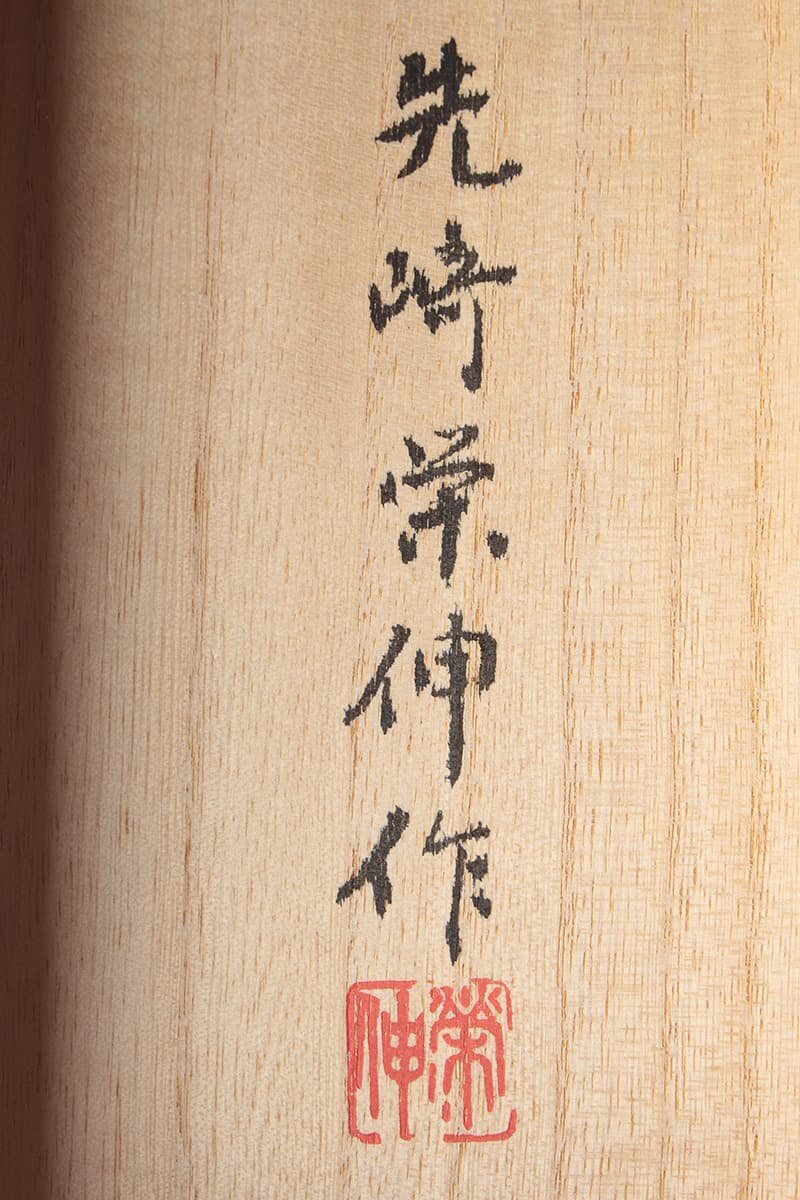 先崎栄伸作
榮伸